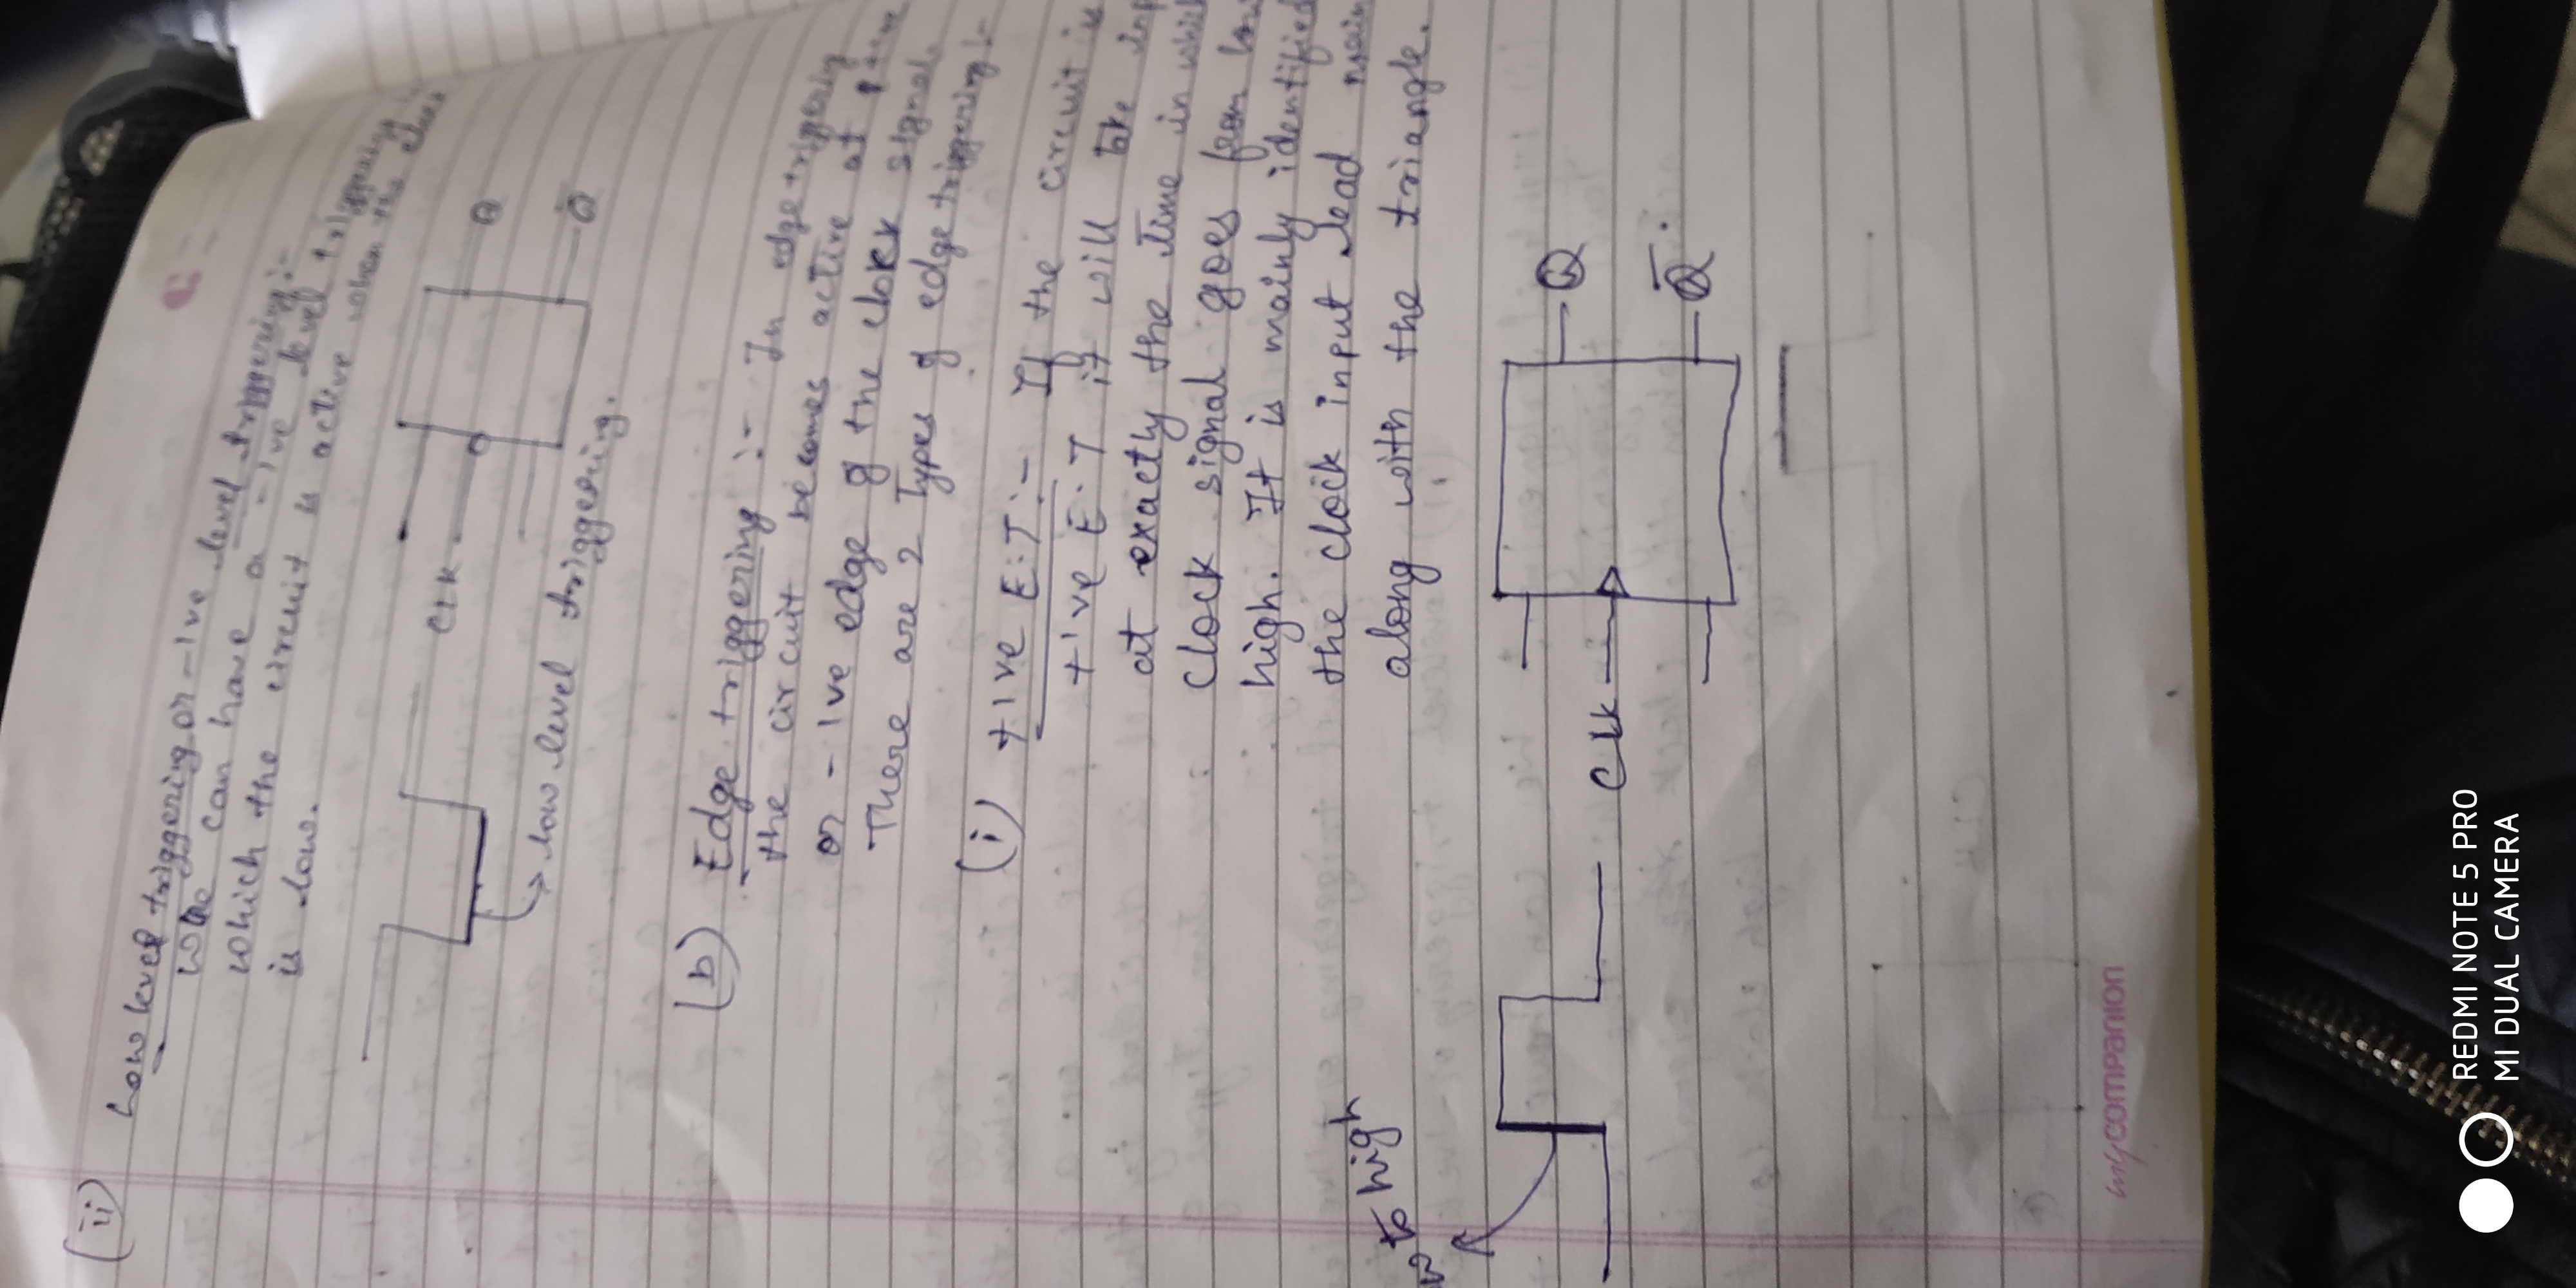 (ii) Low level triggering or -ive level triggering :-
We can have a -ive level triggering in
which the circuit is active when the clock
is low.
CLK
Q
Q̅
low level triggering.
(b) Edge triggering :- In edge triggering
the circuit becomes active at +ive
or -ive edge of the clock signal.
There are 2 Types of edge triggering :-
(i) +ive E.T :- If the circuit is
+ive E.T it will take inp
at exactly the time in which
clock signal goes from low
high. It is mainly identified
the clock input lead
along with the triangle.
w to high
Clk
Q
Q̅
mycompanion
REDMI NOTE 5 PRO
MI DUAL CAMERA